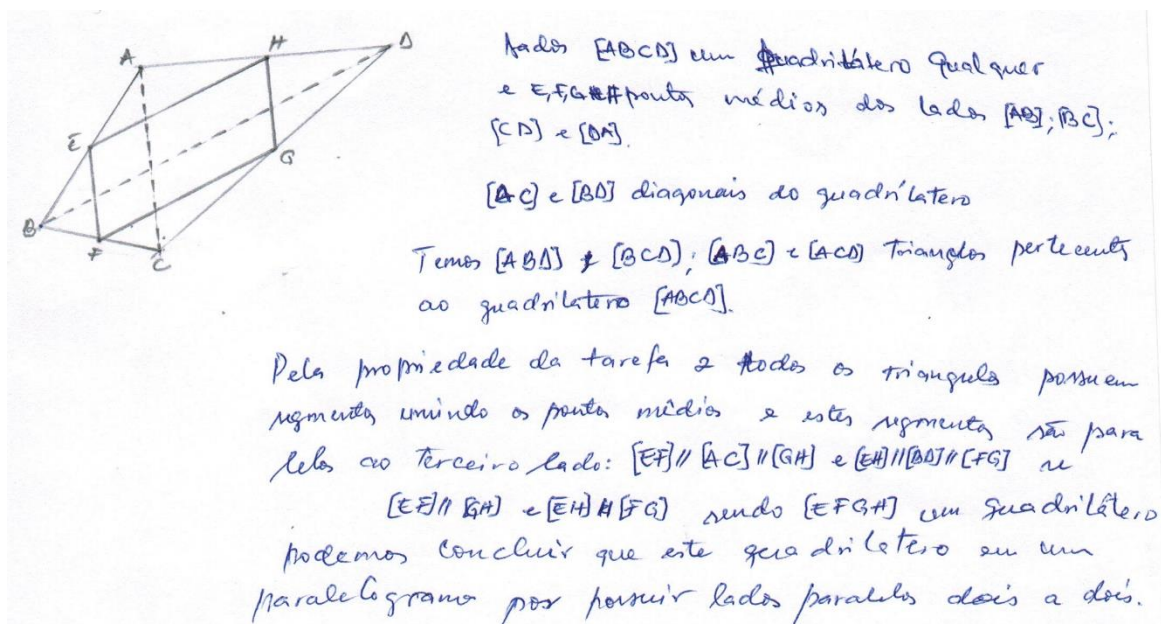 A H D
E G
B F C
Dados [ABCD] um quadrilátero qualquer
e E,F,G e H pontos médios dos lados [AB]; [BC];
[CD] e [DA].
[AC] e [BD] diagonais do quadrilatero
Temos [ABD] e [BCD]; [ABC] e [ACD] triangulos pertecents
ao quadrilatero [ABCD].
Pela propriedade da tarefa 2 todos os triangulos possuem
segmentos unindo os pontos médios e estes segmentos são para
lelos ao terceiro lado: [EF] // [AC] // [GH] e [EH] // [BD] // [FG] se
[EF] // [GH] e [EH] // [FG] sendo [EFGH] um quadrilátero
podemos concluir que este quadrilatero eu um
paralelograma por possuir lados paralelos dois a dois.